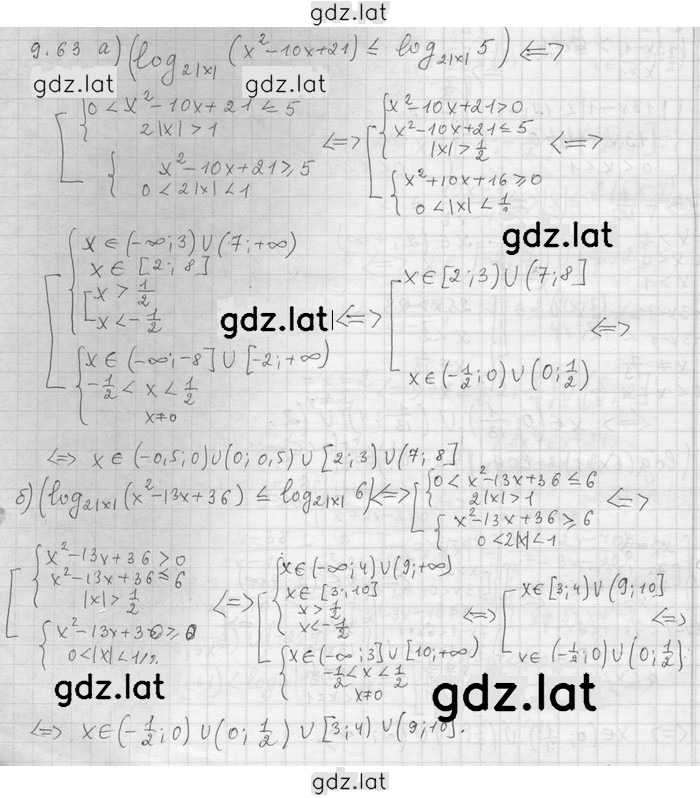 gdz.lat
9.63 а) (log_{2|x|} (x²-10x+21) ≤ log_{2|x|} 5) <=>
gdz.lat
gdz.lat
[ { 0 < x²-10x+21 ≤ 5
2|x| > 1
{ x²-10x+21 ≥ 5
0 < 2|x| < 1
<=> [ { x²-10x+21 > 0
x²-10x+21 ≤ 5
|x| > 1/2
{ x²+10x+16 ≥ 0
0 < |x| < 1/2
<=>
gdz.lat
[ { x ∈ (-∞; 3) ∪ (7; +∞)
x ∈ [2; 8]
[ x > 1/2
x < -1/2
{ x ∈ (-∞; -8] ∪ [-2; +∞)
-1/2 < x < 1/2
x ≠ 0
gdz.lat
<=> [ x ∈ [2; 3) ∪ (7; 8]
x ∈ (-1/2; 0) ∪ (0; 1/2)
<=>
<=> x ∈ (-0,5; 0) ∪ (0; 0,5) ∪ [2; 3) ∪ (7; 8]
б) (log_{2|x|} (x²-13x+36) ≤ log_{2|x|} 6) <=> [ { 0 < x²-13x+36 ≤ 6
2|x| > 1
{ x²-13x+36 ≥ 6
0 < 2|x| < 1
<=>
[ { x²-13x+36 > 0
x²-13x+36 ≤ 6
|x| > 1/2
{ x²-13x+30 ≥ 0
0 < |x| < 1/2
<=> [ { x ∈ (-∞; 4) ∪ (9; +∞)
x ∈ [3; 10]
x > 1/2
x < -1/2
{ x ∈ (-∞; 3] ∪ [10; +∞)
-1/2 < x < 1/2
x ≠ 0
<=> [ x ∈ [3; 4) ∪ (9; 10]
x ∈ (-1/2; 0) ∪ (0; 1/2)
<=>
gdz.lat
gdz.lat
<=> x ∈ (-1/2; 0) ∪ (0; 1/2) ∪ [3; 4) ∪ (9; 10].
gdz.lat